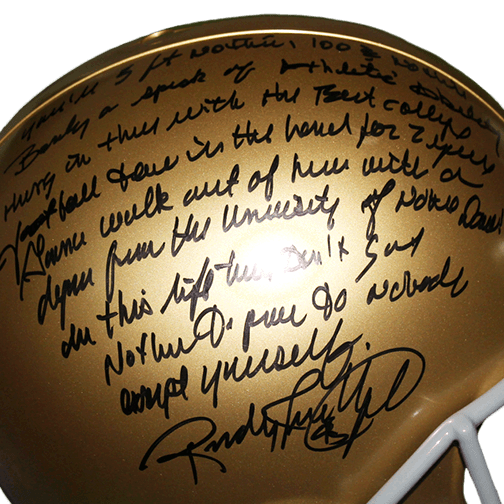 You're 5 ft nothin, 100 & nothin
Barely a speck of athletic ability
Hung in there with the Best college
football team in the land for 2 years
Gonna walk out of here with a
degree from the University of Notre Dame
In this life you Don't Got
Nothin To prove To nobody
except yourself.
Rudy